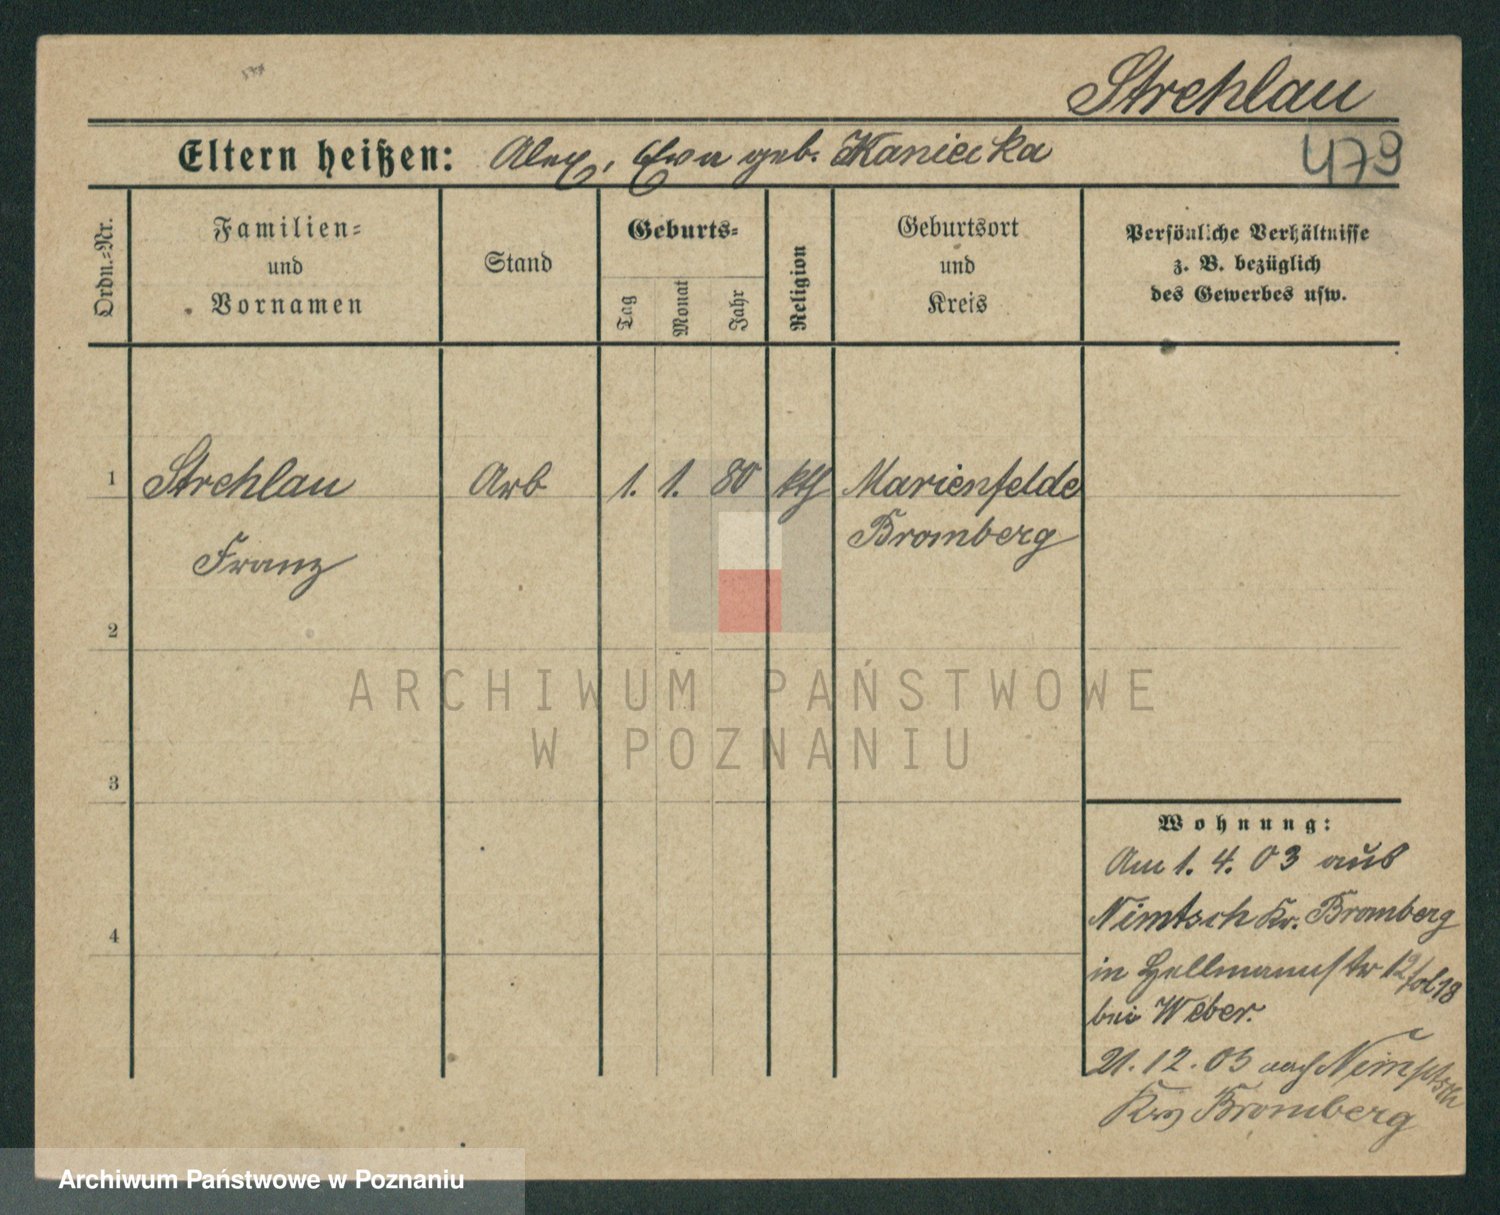 Strehlau
Eltern heißen: Alex, Eva geb. Kaniecka
479
Ordn.-Nr.
Familien-
und
Vornamen
Stand
Geburts-
Tag
Monat
Jahr
Religion
Geburtsort
und
Kreis
Persönliche Verhältnisse
z. B. bezüglich
des Gewerbes usw.
1 Strehlau Arb 1. 1. 80 kth Marienfelde
Bromberg
Franz
2
ARCHIWUM PAŃSTWOWE
W POZNANIU
3
Wohnung:
Am 1. 4. 03 aus
Nimtsch Kr. Bromberg
4
in Hellmannstr 12
bei Weber.
21. 12. 03 nach Nimptsch
Krs Bromberg
Archiwum Państwowe w Poznaniu